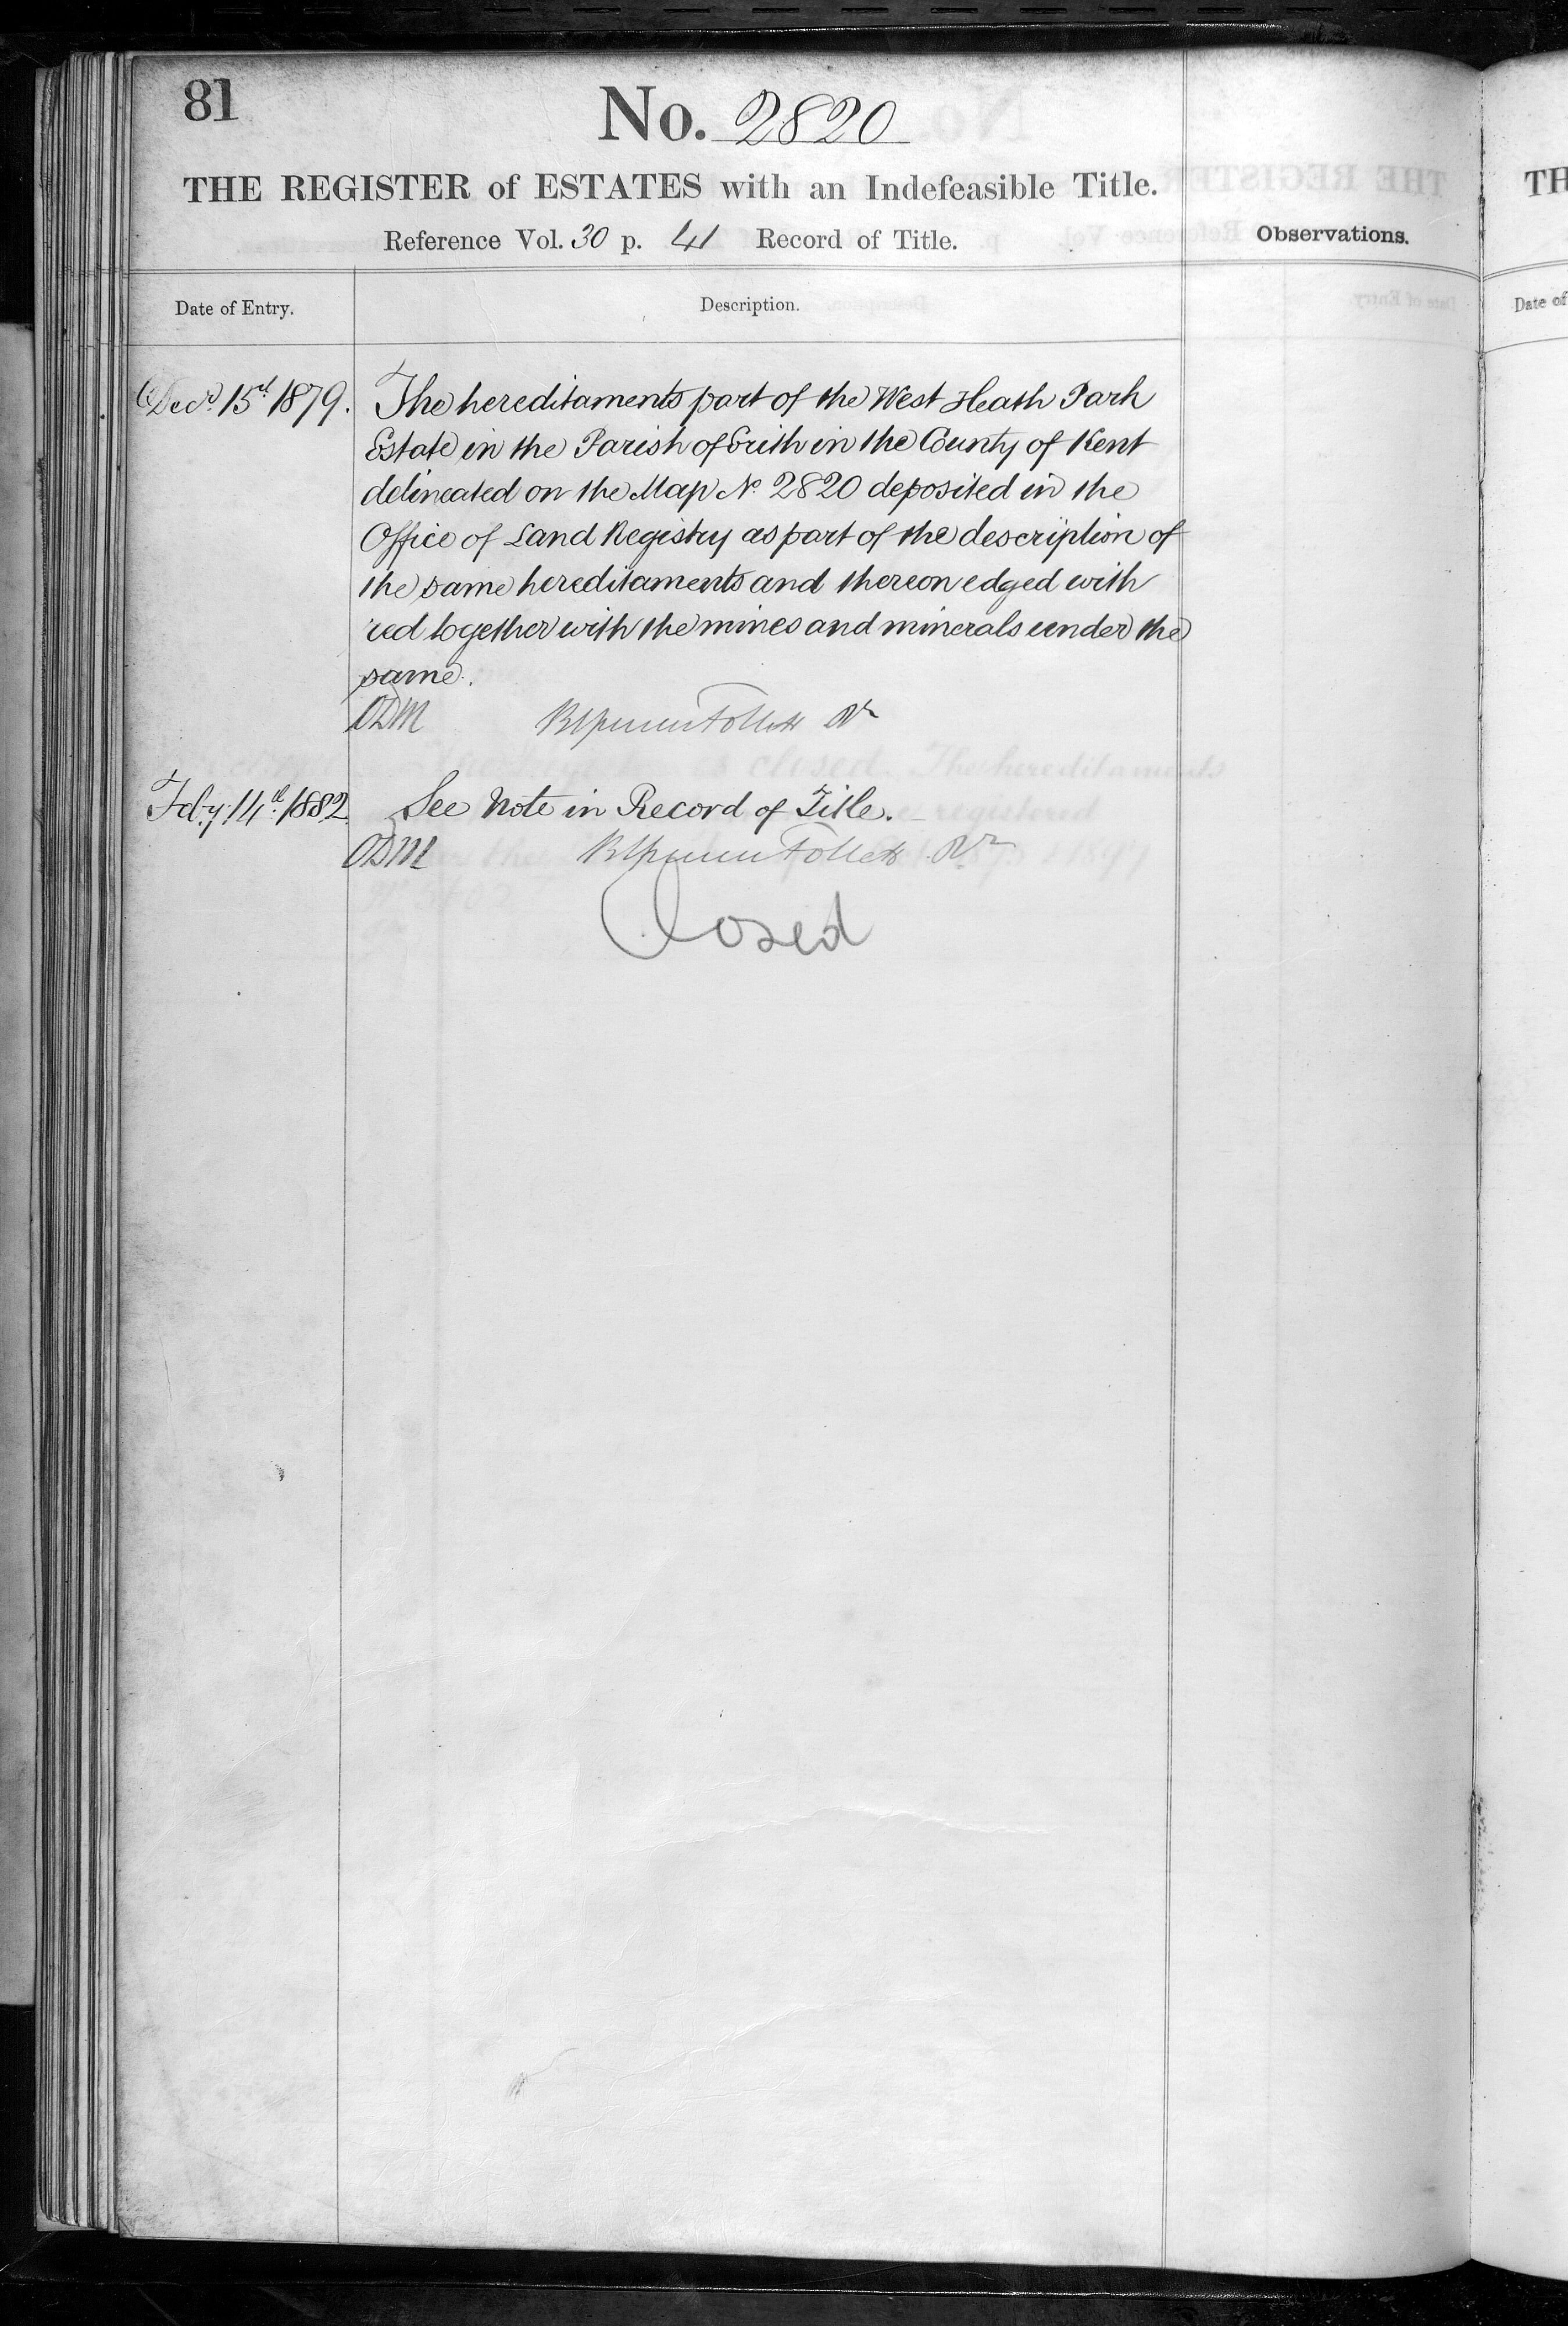 81
No. 2820
THE REGISTER of ESTATES with an Indefeasible Title.
Reference Vol. 30 p. 41 Record of Title.
Observations.
Date of Entry.
Description.
Decr. 15th 1879.
The hereditaments part of the West Heath Park
Estate in the Parish of Erith in the County of Kent
delineated on the Map No. 2820 deposited in the
Office of Land Registry as part of the description of
the same hereditaments and thereon edged with
red together with the mines and minerals under the
same.
Follett
Feby. 14th. 1882.
See Note in Record of Title.
Follett
Closed
TH
Date of